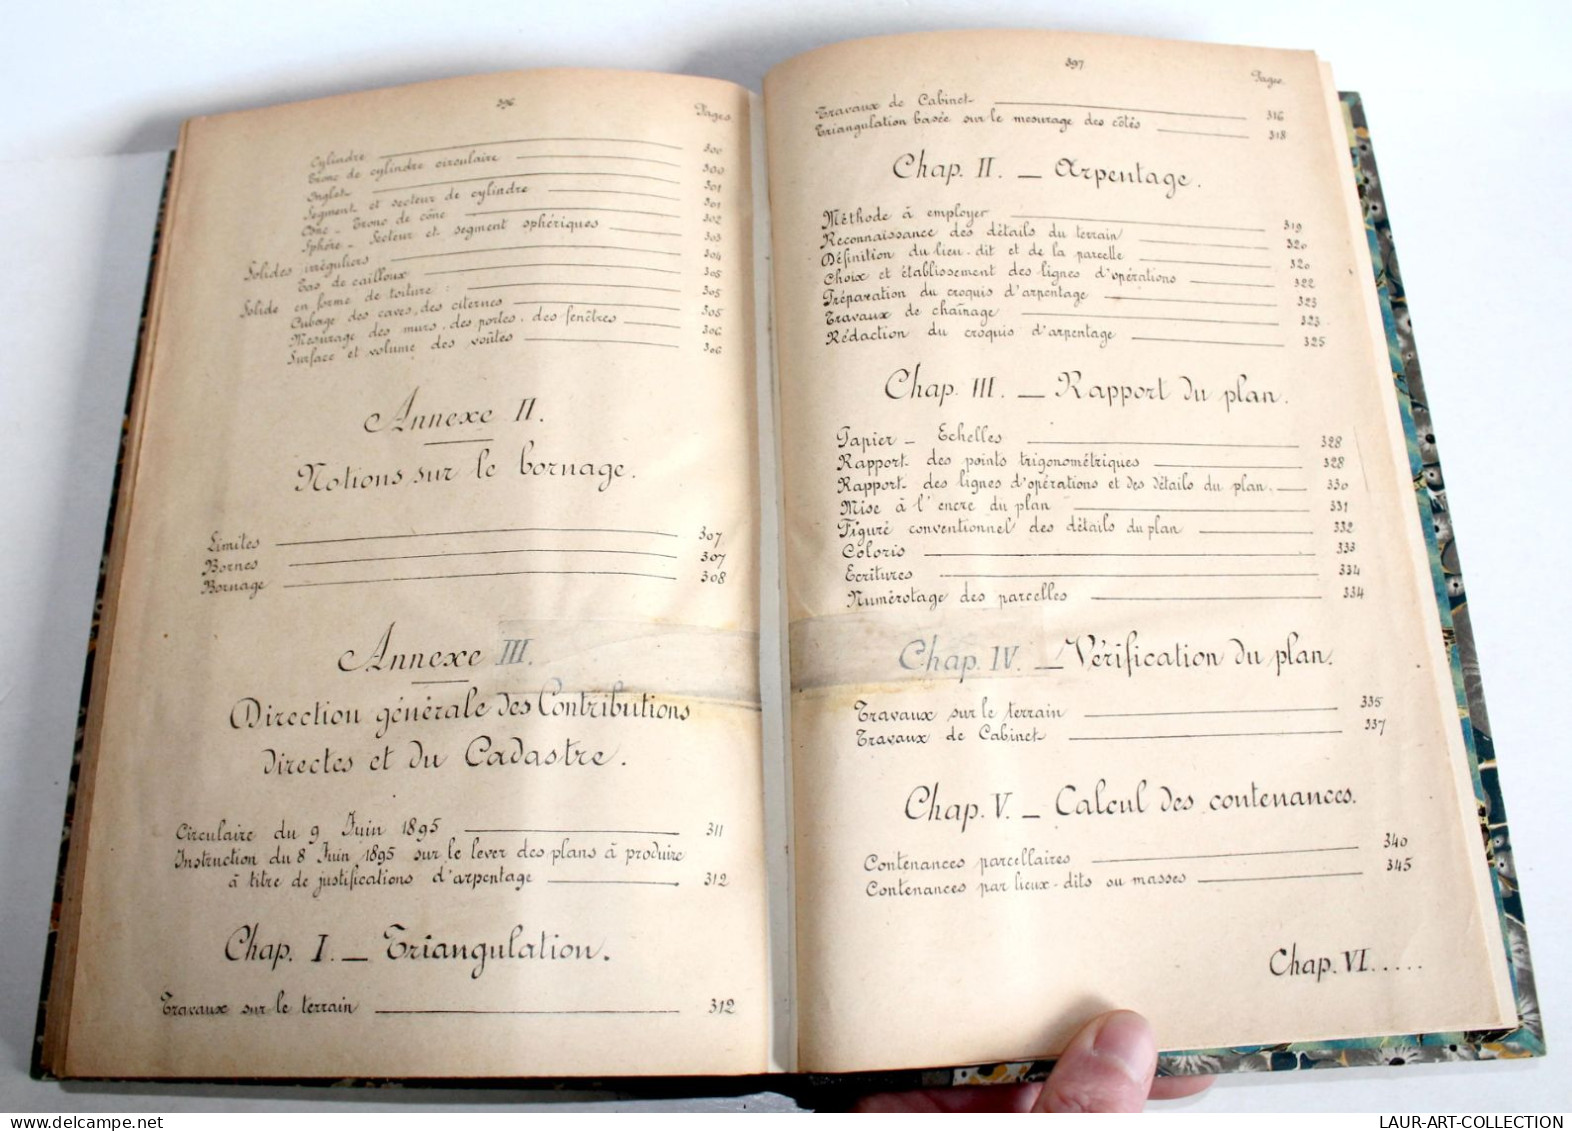 396
Pages.
Cylindre 300
Tronc de cylindre circulaire 300
Onglet 301
Segment et secteur de cylindre 301
Cône - Tronc de cône 302
Sphère - Secteur et segment sphériques 303
Solides irréguliers 304
Tas de cailloux 305
Solide en forme de toiture : 305
Cubage des caves, des citernes 305
Mesurage des murs, des portes, des fenêtres 306
Surface et volume des voûtes 306
Annexe II.
Notions sur le bornage.
Limites 307
Bornes 307
Bornage 308
Annexe III.
Direction générale des Contributions
directes et du Cadastre.
Circulaire du 9 Juin 1895 311
Instruction du 8 Juin 1895 sur le lever des plans à produire
à titre de justifications d'arpentage 312
Chap. I. — Triangulation.
Travaux sur le terrain 312
397
Pages.
Travaux de Cabinet 316
Triangulation basée sur le mesurage des côtés 318
Chap. II. — Arpentage.
Méthode à employer 319
Reconnaissance des détails du terrain 320
Définition du lieu-dit et de la parcelle 320
Choix et établissement des lignes d'opérations 322
Préparation du croquis d'arpentage 323
Travaux de chaînage 323
Rédaction du croquis d'arpentage 325
Chap. III. — Rapport du plan.
Papier - Echelles 328
Rapport des points trigonométriques 328
Rapport des lignes d'opérations et des détails du plan. 330
Mise à l'encre du plan 331
Figuré conventionnel des détails du plan 332
Coloris 333
Ecritures 334
Numérotage des parcelles 334
Chap. IV. — Vérification du plan.
Travaux sur le terrain 335
Travaux de Cabinet 337
Chap. V. — Calcul des contenances.
Contenances parcellaires 340
Contenances par lieux-dits ou masses 345
Chap. VI.....
LAUR-ART-COLLECTION